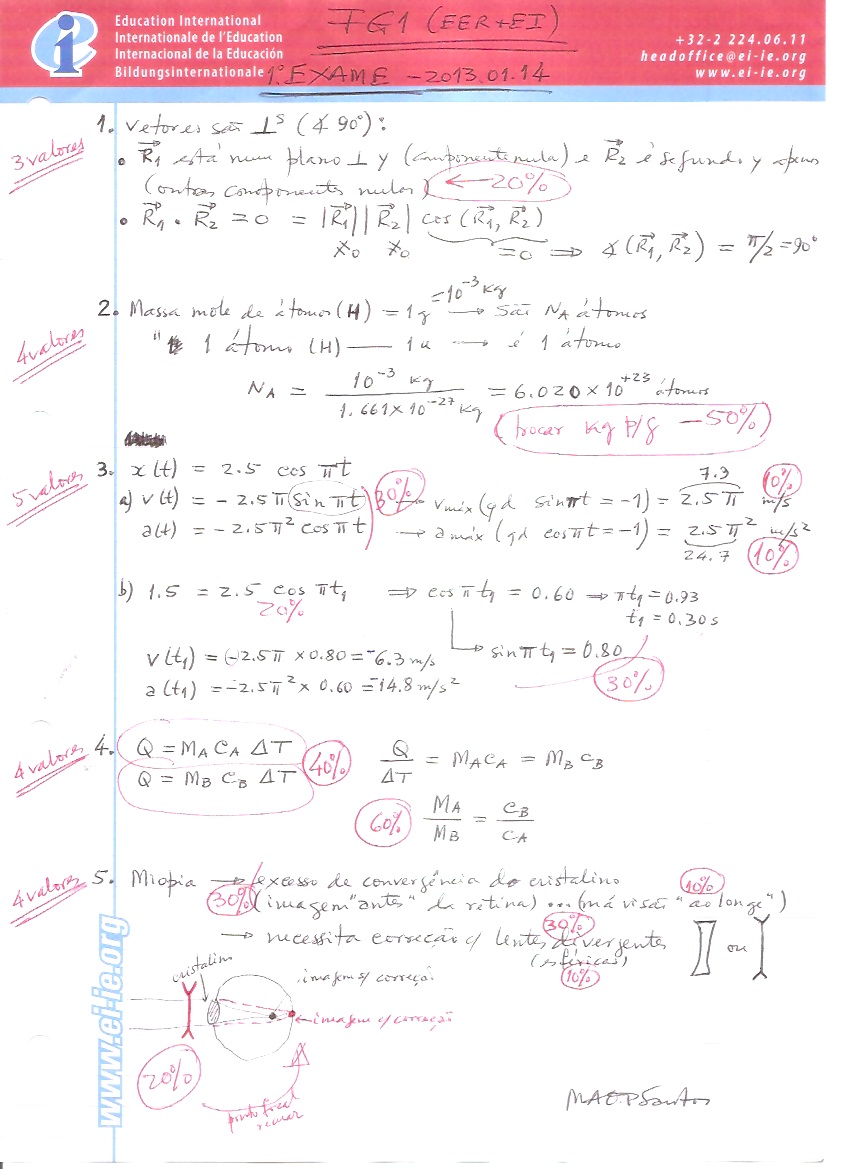 Education International
Internationale de l'Education
Internacional de la Educación
Bildungsinternationale
FG1 (EER+EI)
1º EXAME - 2013.01.14
+32-2 224.06.11
headoffice@ei-ie.org
www.ei-ie.org
3 valores
1. Vetores são ⊥s (∢ 90°):
• R⃗1 está num plano ⊥ y (componente nula) e R⃗2 é segundo y apenas
(outras componentes nulas) ← 20%
• R⃗1 . R⃗2 = 0 = |R⃗1| |R⃗2| cos (R⃗1, R⃗2)
≠0 ≠0 =0 ⟹ ∢(R⃗1, R⃗2) = π/2 = 90°
4 valores
2. Massa mole de átomos (H) = 1g = 10⁻³ kg → São NA átomos
" 1 átomo (H) — 1u → é 1 átomo
NA = 10⁻³ kg / 1.661×10⁻²⁷ kg = 6.020×10⁺²³ átomos
(trocar kg p/g -50%)
5 valores
3. x(t) = 2.5 cos πt
a) v(t) = - 2.5π sin πt 30% → vmáx (qd sin πt = -1) = 2.5π m/s 7.9 10%
a(t) = - 2.5π² cos πt → amáx (qd cos πt = -1) = 2.5π² m/s² 24.7 10%
b) 1.5 = 2.5 cos πt1 ⟹ cos πt1 = 0.60 ⟹ πt1 = 0.93
20%
t1 = 0.30 s
sin πt1 = 0.80
v(t1) = (-)2.5π × 0.80 = -6.3 m/s
a(t1) = -2.5π² × 0.60 = -14.8 m/s²
30%
4 valores
4. Q = MA CA ΔT
Q = MB CB ΔT
40%
Q/ΔT = MA CA = MB CB
60% MA/MB = CB/CA
4 valores
5. Miopia → excesso de convergência do cristalino
30% (imagem "antes" da retina) ... (má visão "ao longe") 10%
→ necessita correção c/ lentes divergentes 30%
(esféricas) 10%
ou
cristalino
imagem s/ correção
imagem c/ correção
20%
ponto focal
recuar
www.ei-ie.org
MAEPSantos